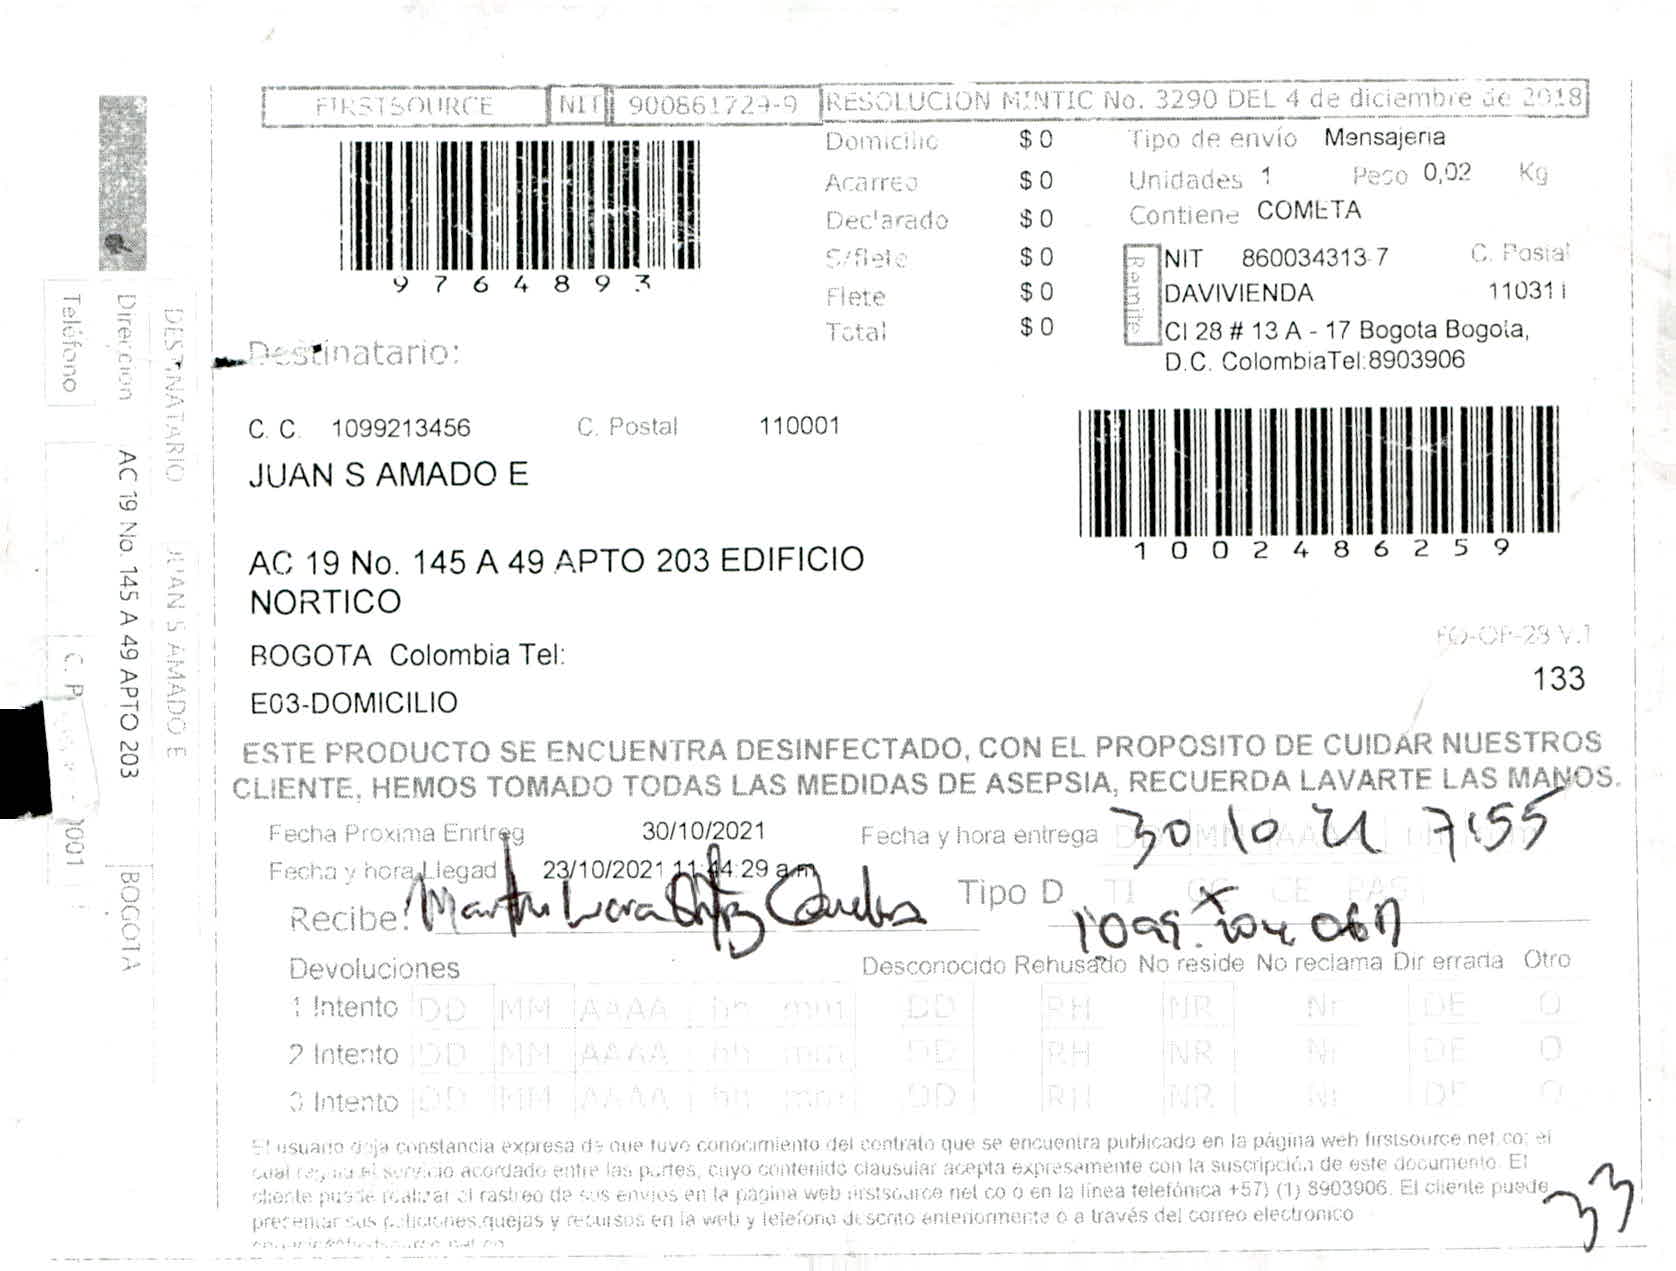 FIRSTSOURCE NIT 900861729-9 RESOLUCION MINTIC No. 3290 DEL 4 de diciembre de 2018
9764893
Domicilio $ 0
Acarreo $ 0
Declarado $ 0
S/flete $ 0
Flete $ 0
Total $ 0
Tipo de envío Mensajeria
Unidades 1 Peso 0,02 Kg
Contiene COMETA
Remite
NIT 860034313-7 C. Postal
DAVIVIENDA 110311
Cl 28 # 13 A - 17 Bogota Bogota,
D.C. Colombia Tel:8903906
Destinatario:
C. C. 1099213456 C. Postal 110001
JUAN S AMADO E
1002486259
AC 19 No. 145 A 49 APTO 203 EDIFICIO
NORTICO
BOGOTA Colombia Tel:
E03-DOMICILIO
FO-OP-29 V.1
133
ESTE PRODUCTO SE ENCUENTRA DESINFECTADO, CON EL PROPOSITO DE CUIDAR NUESTROS
CLIENTE, HEMOS TOMADO TODAS LAS MEDIDAS DE ASEPSIA, RECUERDA LAVARTE LAS MANOS.
Fecha Proxima Enrtreg 30/10/2021 Fecha y hora entrega 30 10 21 7:55
Fecha y hora Llegad 23/10/2021 11:44:29 a.m
Tipo D TI CC CE PAS
Recibe:
Devoluciones Desconocido Rehusado No reside No reclama Dir errada Otro
1 Intento DD MM AAAA hh mm DD RH NR Nr DE O
2 Intento DD MM AAAA hh mm DD RH NR Nr DE O
3 Intento DD MM AAAA hh mm DD RH NR Nr DE O
El usuario deja constancia expresa de que tuvo conocimiento del contrato que se encuentra publicado en la página web firstsource.net.co; el
cual regula el servicio acordado entre las partes, cuyo contenido clausular acepta expresamente con la suscripción de este documento. El
cliente puede realizar el rastreo de sus envios en la página web firstsource net co o en la línea telefónica +57) (1) 8903906. El cliente puede
presentar sus peticiones,quejas y recursos en la web y telefono descrito anteriormente o a través del correo electronico
33
DESTINATARIO JUAN S AMADO E
Direccion AC 19 No. 145 A 49 APTO 203 BOGOTA
Teléfono